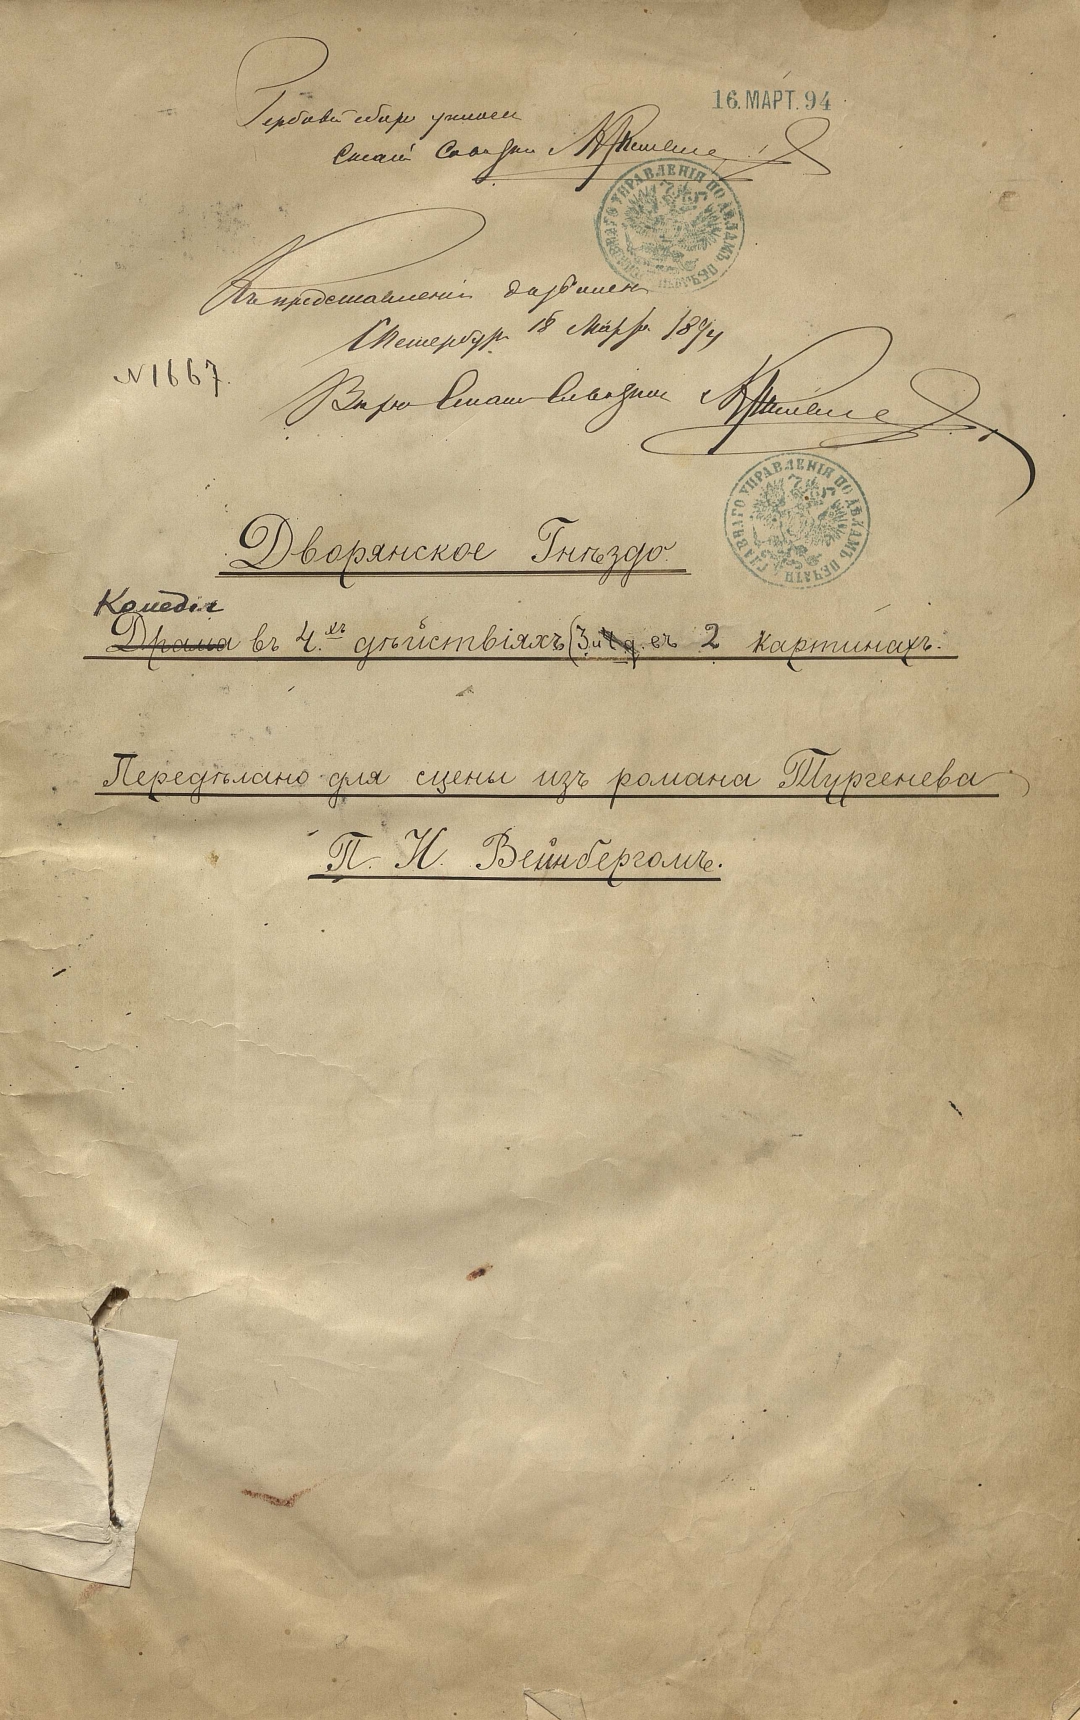 16. МАРТ. 94
Гербовый сборъ уплаченъ
Къ представленію дозволено
С Петербургъ 18 Марта 1894
N 1667.
ГЛАВНАГО УПРАВЛЕНІЯ ПО ДѢЛАМЪ ПЕЧАТИ
ГЛАВНАГО УПРАВЛЕНІЯ ПО ДѢЛАМЪ ПЕЧАТИ
Дворянское Гнѣздо.
Комедія
Драма въ 4.хъ дѣйствіяхъ (3. и 4 д. въ 2 картинахъ.
Передѣлано для сцены изъ романа Тургенева
П. И. Вейнбергомъ.